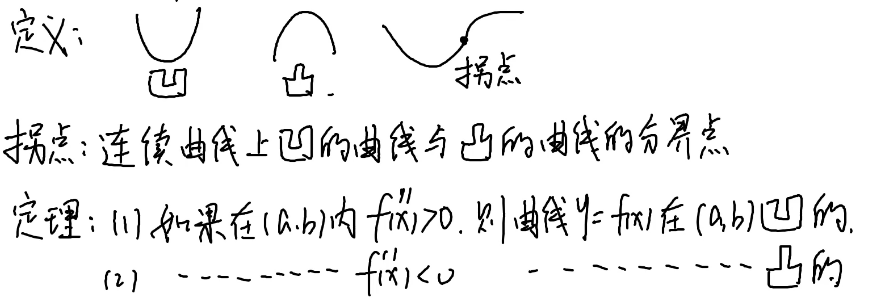 定义:
凹 凸. 拐点
拐点:连续曲线上凹的曲线与凸的曲线的分界点
定理:(1) 如果在(a.b)内 f''(x)>0. 则曲线y=f(x)在(a,b)凹的.
(2) --------- f''(x)<0 --------- 凸的